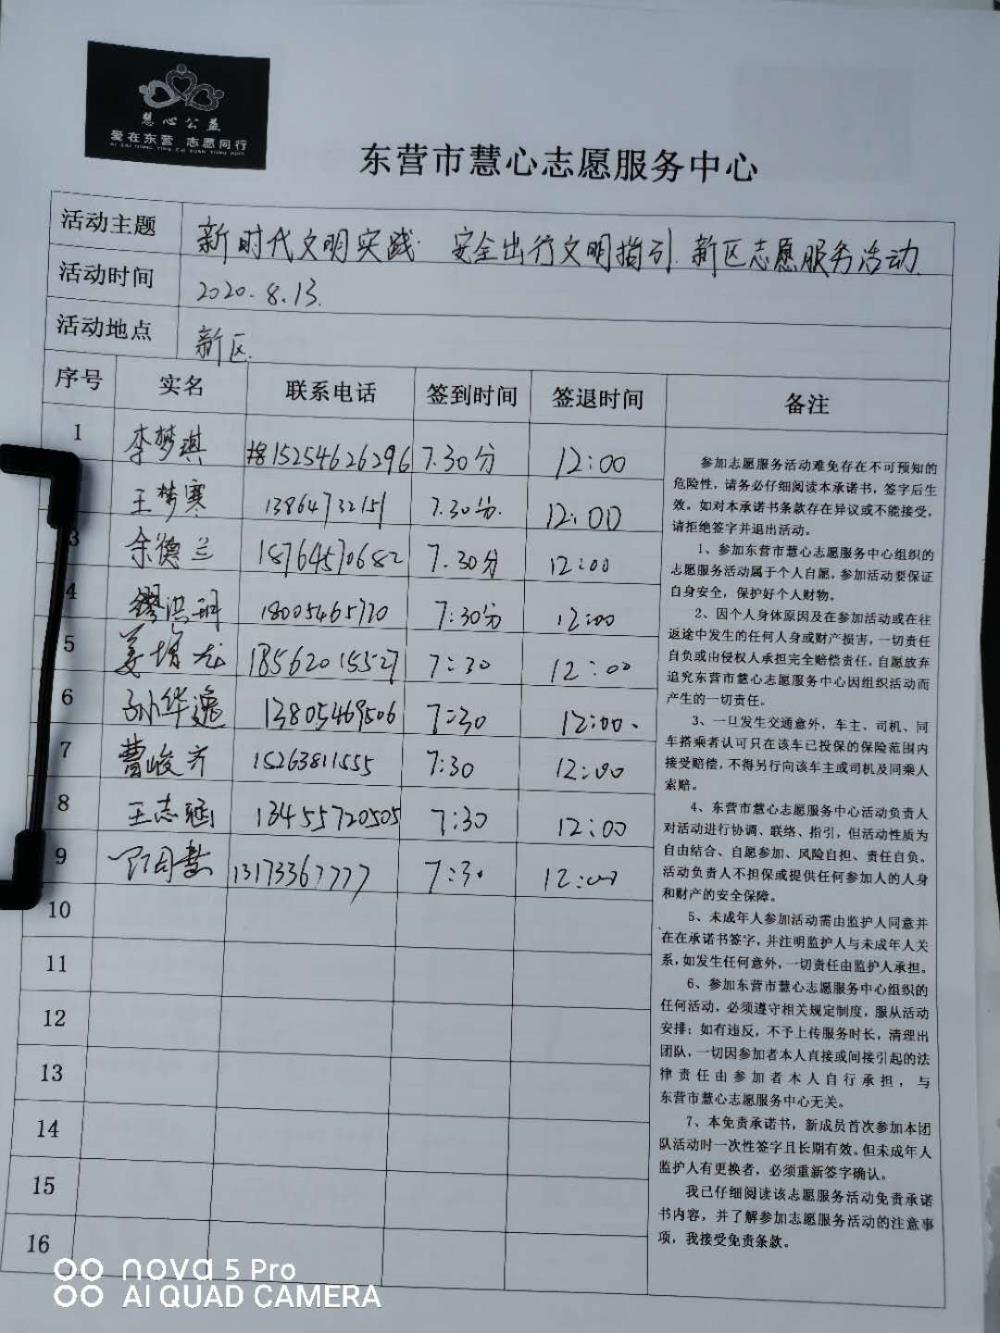 慧心公益
爱在东营 志愿同行
东营市慧心志愿服务中心
活动主题 新时代文明实践. 安全出行文明指引.新区志愿服务活动
活动时间 2020.8.13.
活动地点 新区.
序号 实名 联系电话 签到时间 签退时间 备注
1 李梦琪 15254626296 7.30分 12:00
王梦寒 13864732151 7.30分. 12:00
3 余德兰 18764570682 7.30分 12:00
4 缪洪 18005465770 7:30分 12:00
5 姜增龙 18562015527 7:30 12:00
6 孙华逸 13805469506 7:30 12:00.
7 曹峻齐 15263811555 7:30 12:00
8 王志涵 13455720505 7:30 12:00
9 13173367777 7:30 12:00
10
11
12
13
14
15
16
参加志愿服务活动难免存在不可预知的
危险性，请务必仔细阅读本承诺书，签字后生
效。如对本承诺书条款存在异议或不能接受，
请拒绝签字并退出活动。
1、参加东营市慧心志愿服务中心组织的
志愿服务活动属于个人自愿，参加活动要保证
自身安全，保护好个人财物。
2、因个人身体原因及在参加活动或在往
返途中发生的任何人身或财产损害，一切责任
自负或由侵权人承担完全赔偿责任，自愿放弃
追究东营市慧心志愿服务中心因组织活动而
产生的一切责任。
3、一旦发生交通意外，车主、司机、同
车搭乘者认可只在该车已投保的保险范围内
接受赔偿，不得另行向该车主或司机及同乘人
索赔。
4、东营市慧心志愿服务中心活动负责人
对活动进行协调、联络、指引，但活动性质为
自由结合、自愿参加、风险自担、责任自负。
活动负责人不担保或提供任何参加人的人身
和财产的安全保障。
5、未成年人参加活动需由监护人同意并
在在承诺书签字，并注明监护人与未成年人关
系，如发生任何意外，一切责任由监护人承担。
6、参加东营市慧心志愿服务中心组织的
任何活动，必须遵守相关规定制度，服从活动
安排；如有违反，不予上传服务时长，清理出
团队，一切因参加者本人直接或间接引起的法
律责任由参加者本人自行承担，与
东营市慧心志愿服务中心无关。
7、本免责承诺书，新成员首次参加本团
队活动时一次性签字且长期有效。但未成年人
监护人有更换者，必须重新签字确认。
我已仔细阅读该志愿服务活动免责承诺
书内容，并了解参加志愿服务活动的注意事
项，我接受免责条款。
nova 5 Pro
AI QUAD CAMERA